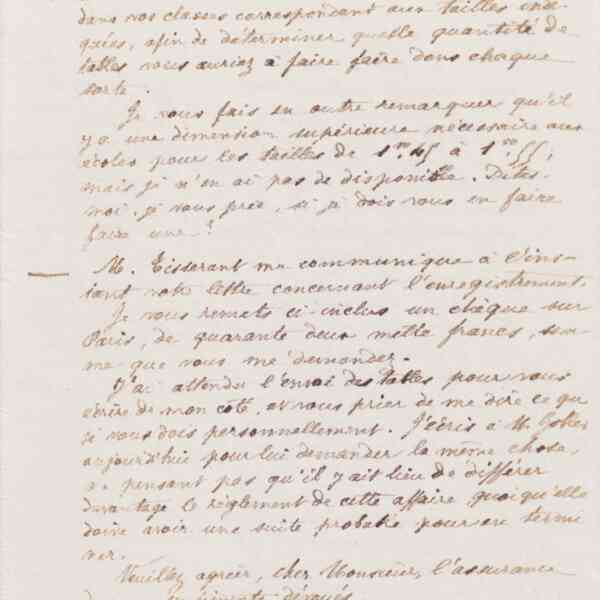 dans vos classes correspondant aux tailles indi-
quées, afin de déterminer quelle quantité de
tables vous auriez à faire faire dans chaque
sorte.
Je vous fais en outre remarquer qu'il
y a une dimension supérieure nécessaire aux
écoles pour les tailles de 1m.45 à 1m.55,
mais je n'en ai pas de disponible. Dites-
moi, je vous prie, si je dois vous en faire
faire une?
M. Tisserant me communique à l'ins-
tant votre lettre concernant l'enregistrement.
Je vous remets ci-inclus un chèque sur
Paris, de quarante deux mille francs, som-
me que vous me demandez.
J'ai attendu l'envoi des tables pour vous
écrire de mon côté, et vous prier de me dire ce que
je vous dois personnellement. J'écris à M.
aujourd'hui pour lui demander la même chose,
ne pensant pas qu'il y ait lieu de différer
davantage le règlement de cette affaire quoiqu'elle
doive avoir une suite probable pour se termi
ner.
Veuillez agréer, cher Monsieur, l'assurance
de sentiments dévoués